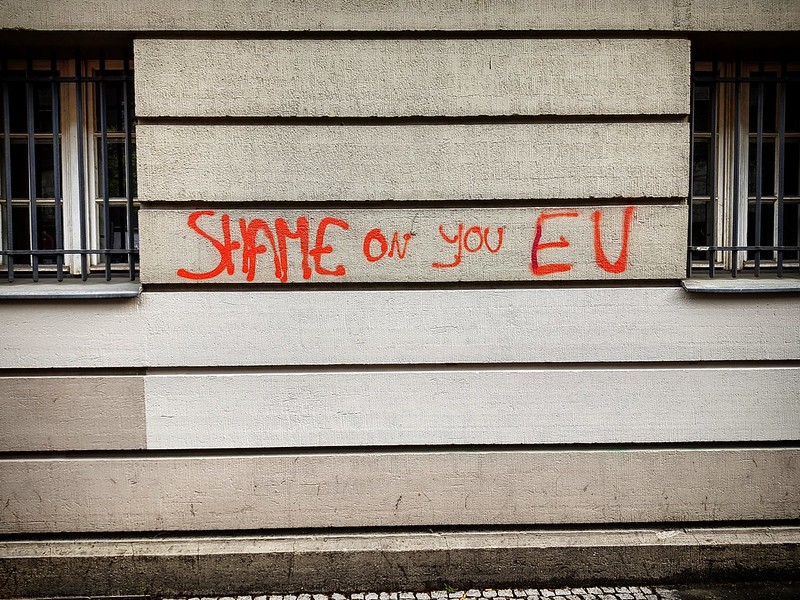 SHAME ON YOU EU